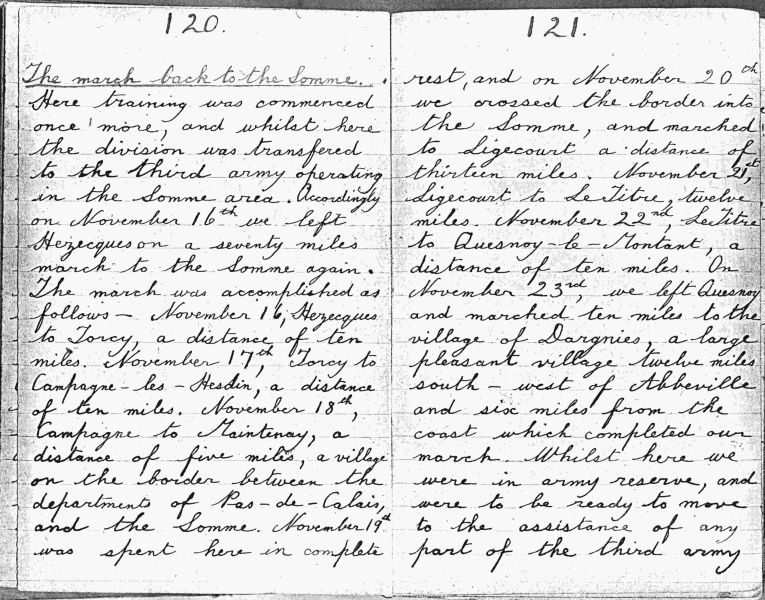 120.
The march back to the Somme.
Here training was commenced
once more, and whilst here
the division was transfered
to the third army operating
in the Somme area. Accordingly
on November 16th we left
Hezecques on a seventy miles
march to the Somme again.
The march was accomplished as
follows - November 16, Hezecques
to Torcy, a distance of ten
miles. November 17th, Torcy to
Campagne-les-Hesdin, a distance
of ten miles. November 18th,
Campagne to Maintenay, a
distance of five miles, a village
on the border between the
departments of Pas-de-Calais,
and the Somme. November 19th
was spent here in complete
121.
rest, and on November 20th
we crossed the border into
the Somme, and marched
to Ligecourt a distance of
thirteen miles. November 21st,
Ligecourt to Le Titre, twelve
miles. November 22nd, Le Titre
to Quesnoy-le-Montant, a
distance of ten miles. On
November 23rd, we left Quesnoy
and marched ten miles to the
village of Dargnies, a large
pleasant village twelve miles
south-west of Abbeville
and six miles from the
coast which completed our
march. Whilst here we
were in army reserve, and
were to be ready to move
to the assistance of any
part of the third army